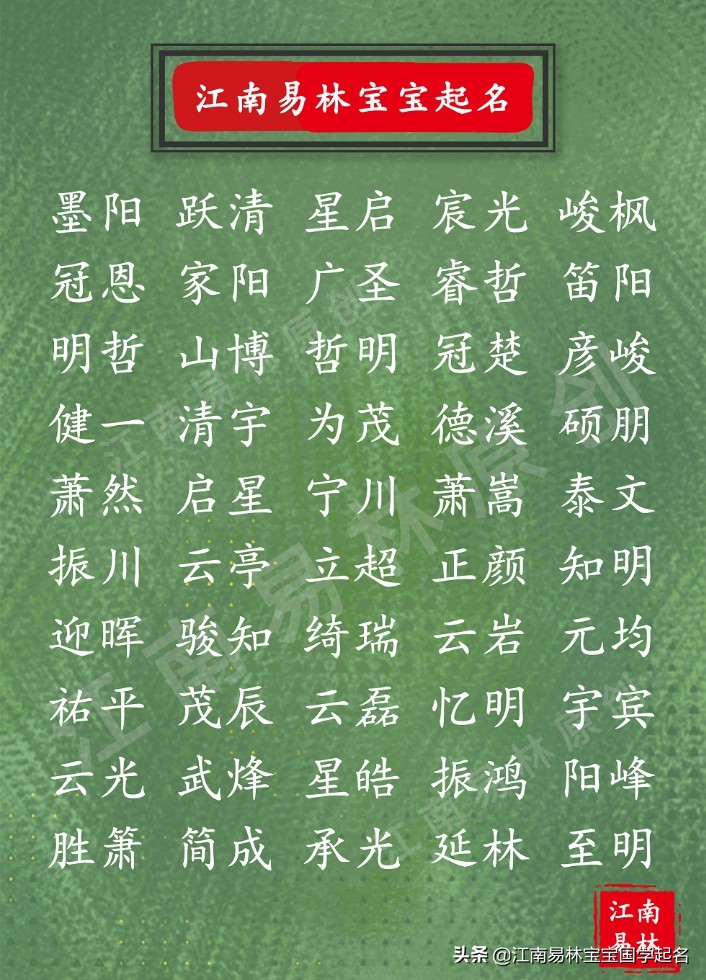 江南易林宝宝起名
墨阳 跃清 星启 宸光 峻枫
冠恩 家阳 广圣 睿哲 笛阳
明哲 山博 哲明 冠楚 彦峻
健一 清宇 为茂 德溪 硕朋
萧然 启星 宁川 萧嵩 泰文
振川 云亭 立超 正颜 知明
迎晖 骏知 绮瑞 云岩 元均
祐平 茂辰 云磊 忆明 宇宾
云光 武烽 星皓 振鸿 阳峰
胜箫 简成 承光 延林 至明
江南易林原创
江南易林原创
江南易林原创
江南
易林
头条 @江南易林宝宝国学起名